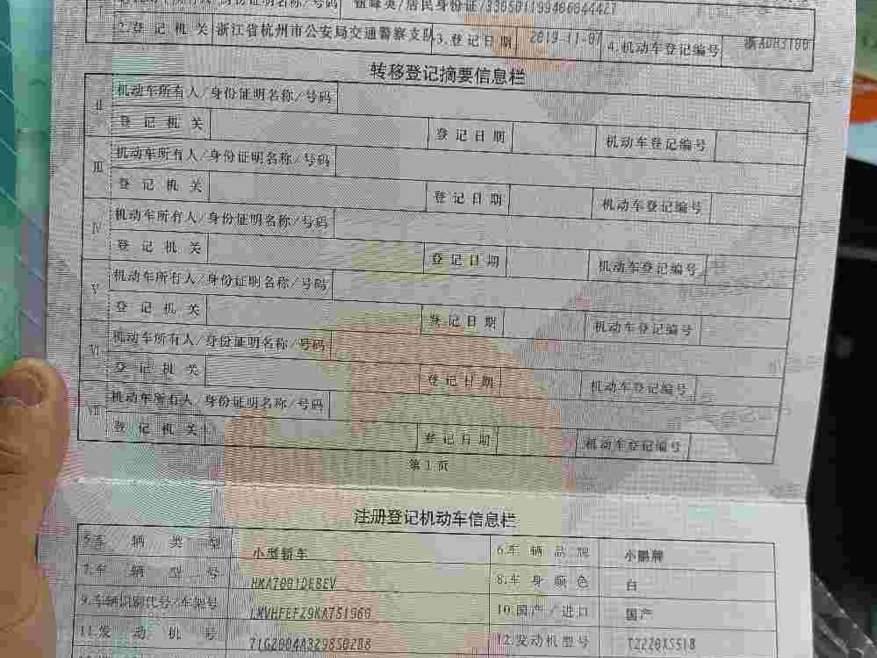 2.登记机关 浙江省杭州市公安局交通警察支队 3.登记日期 2019-11-07 4.机动车登记编号
转移登记摘要信息栏
Ⅱ 机动车所有人/身份证明名称/号码
登记机关 登记日期 机动车登记编号
Ⅲ 机动车所有人/身份证明名称/号码
登记机关 登记日期 机动车登记编号
Ⅳ 机动车所有人/身份证明名称/号码
登记机关 登记日期 机动车登记编号
Ⅴ 机动车所有人/身份证明名称/号码
登记机关 登记日期 机动车登记编号
Ⅵ 机动车所有人/身份证明名称/号码
登记机关 登记日期 机动车登记编号
Ⅶ 机动车所有人/身份证明名称/号码
登记机关 登记日期 机动车登记编号
第1页
注册登记机动车信息栏
5.车辆类型 小型轿车 6.车辆品牌 小鹏牌
7.车辆型号 8.车身颜色 白
9.车辆识别代号/车架号 10.国产/进口 国产
11.发动机号 12.发动机型号